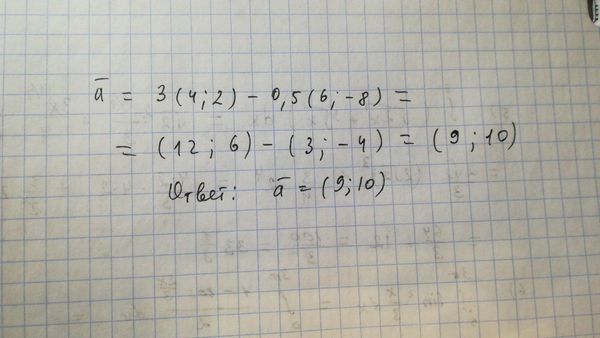 ā = 3(4;2) - 0,5(6;-8) =
= (12; 6) - (3; -4) = (9; 10)
Ответ: ā = (9;10)